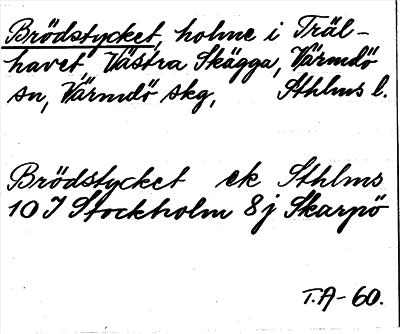 Brödstycket, holme i Träl-
havet, Västra Skägga, Värmdö
sn, Värmdö skg, Sthlms l.
Brödstycket ek Sthlms
10 I Stockholm 8 j Skarpö
T.A-60.